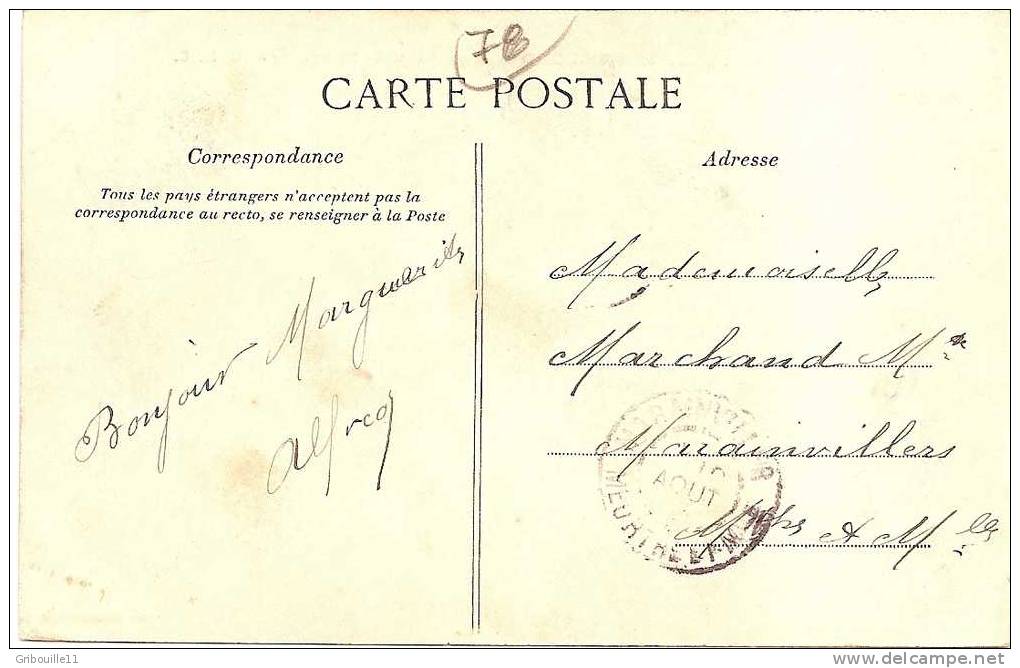 78
CARTE POSTALE
Correspondance
Tous les pays étrangers n'acceptent pas la
correspondance au recto, se renseigner à la Poste
Bonjour Marguerite
Alfred
Adresse
Mademoiselle
Marchand Mte
Marainvillers
Mthe & Mlle
AOUT
MEURTHE-ET-M
Gribouille11
www.delcampe.net